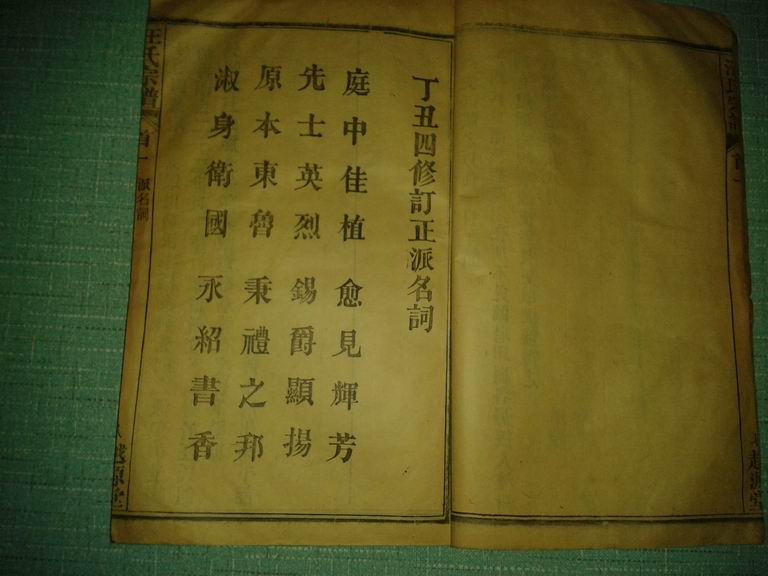 丁丑四修訂正派名詞
庭中佳植 愈見輝芳
先士英烈 錫爵顯揚
原本東魯 秉禮之邦
淑身衛國 永紹書香
汪氏宗譜 首一 派名詞 八 越源堂